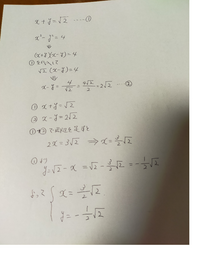 x + y = √2 ……①
x² - y² = 4
(x+y)(x-y) = 4
√2 (x-y) = 4
x - y = 4/√2 = 4√2/2 = 2√2 …②
① x + y = √2
② x - y = 2√2
2x = 3√2 ⟹ x = 3/2 √2
①より
y = √2 - x = √2 - 3/2 √2 = - 1/2 √2
よって { x = 3/2 √2
y = - 1/2 √2